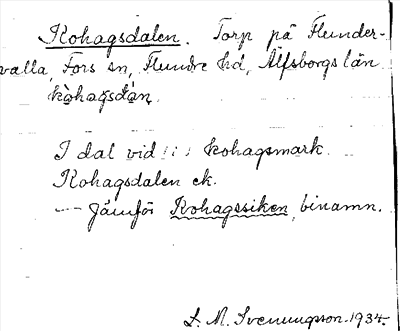 Kohagsdalen. Torp på Flunder-
valla, Fors sn, Flundre hd, Älfsborgs län.
kòhagsdàn.
I dal vid (i) kohagsmark.
Kohagsdalen ek.
— Jämför Kohagssiken, binamn.
L. M. Svenungson. 1934.